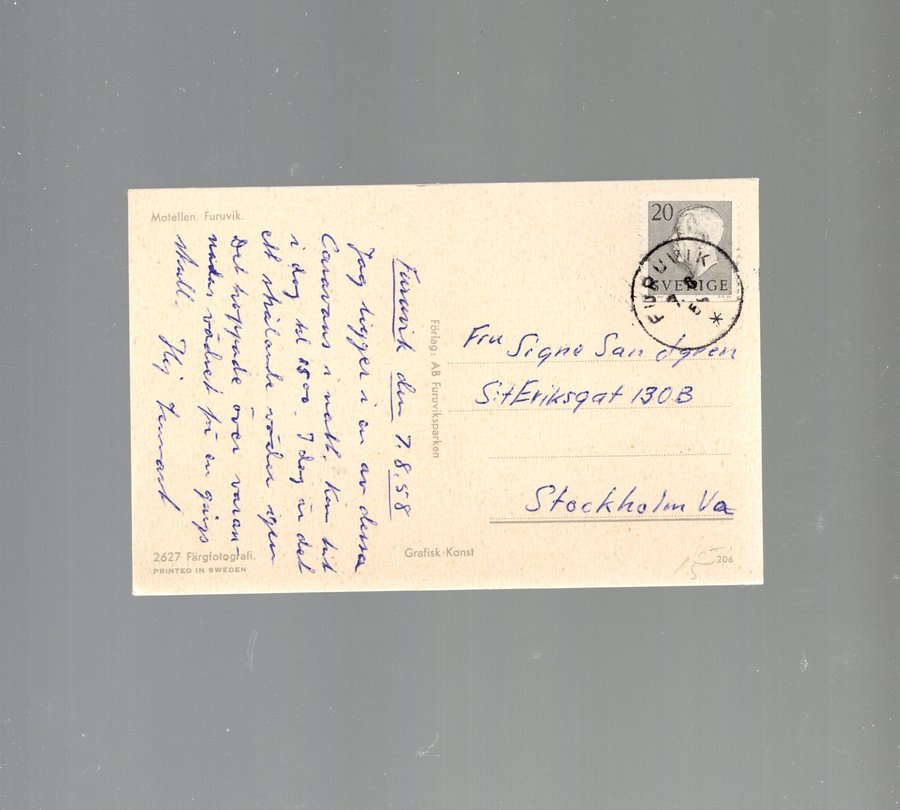 Motellen. Furuvik.
Furuvik den 7.8.58
Jag ligger i en av dessa
Caravans i natt. Kom hit
i dag kl 1500. I dag är det
ett strålande väder igen
Det hoppade över varan-
nader vädret på en gångs
skull. Hej Lennart
2627 Färgfotografi.
PRINTED IN SWEDEN
Förlag: AB Furuviksparken
Grafisk Konst
20
SVERIGE
FURUVIK
7 8
Fru Signe Sandgren
S:t Eriksgat 130B
Stockholm Va
15
206